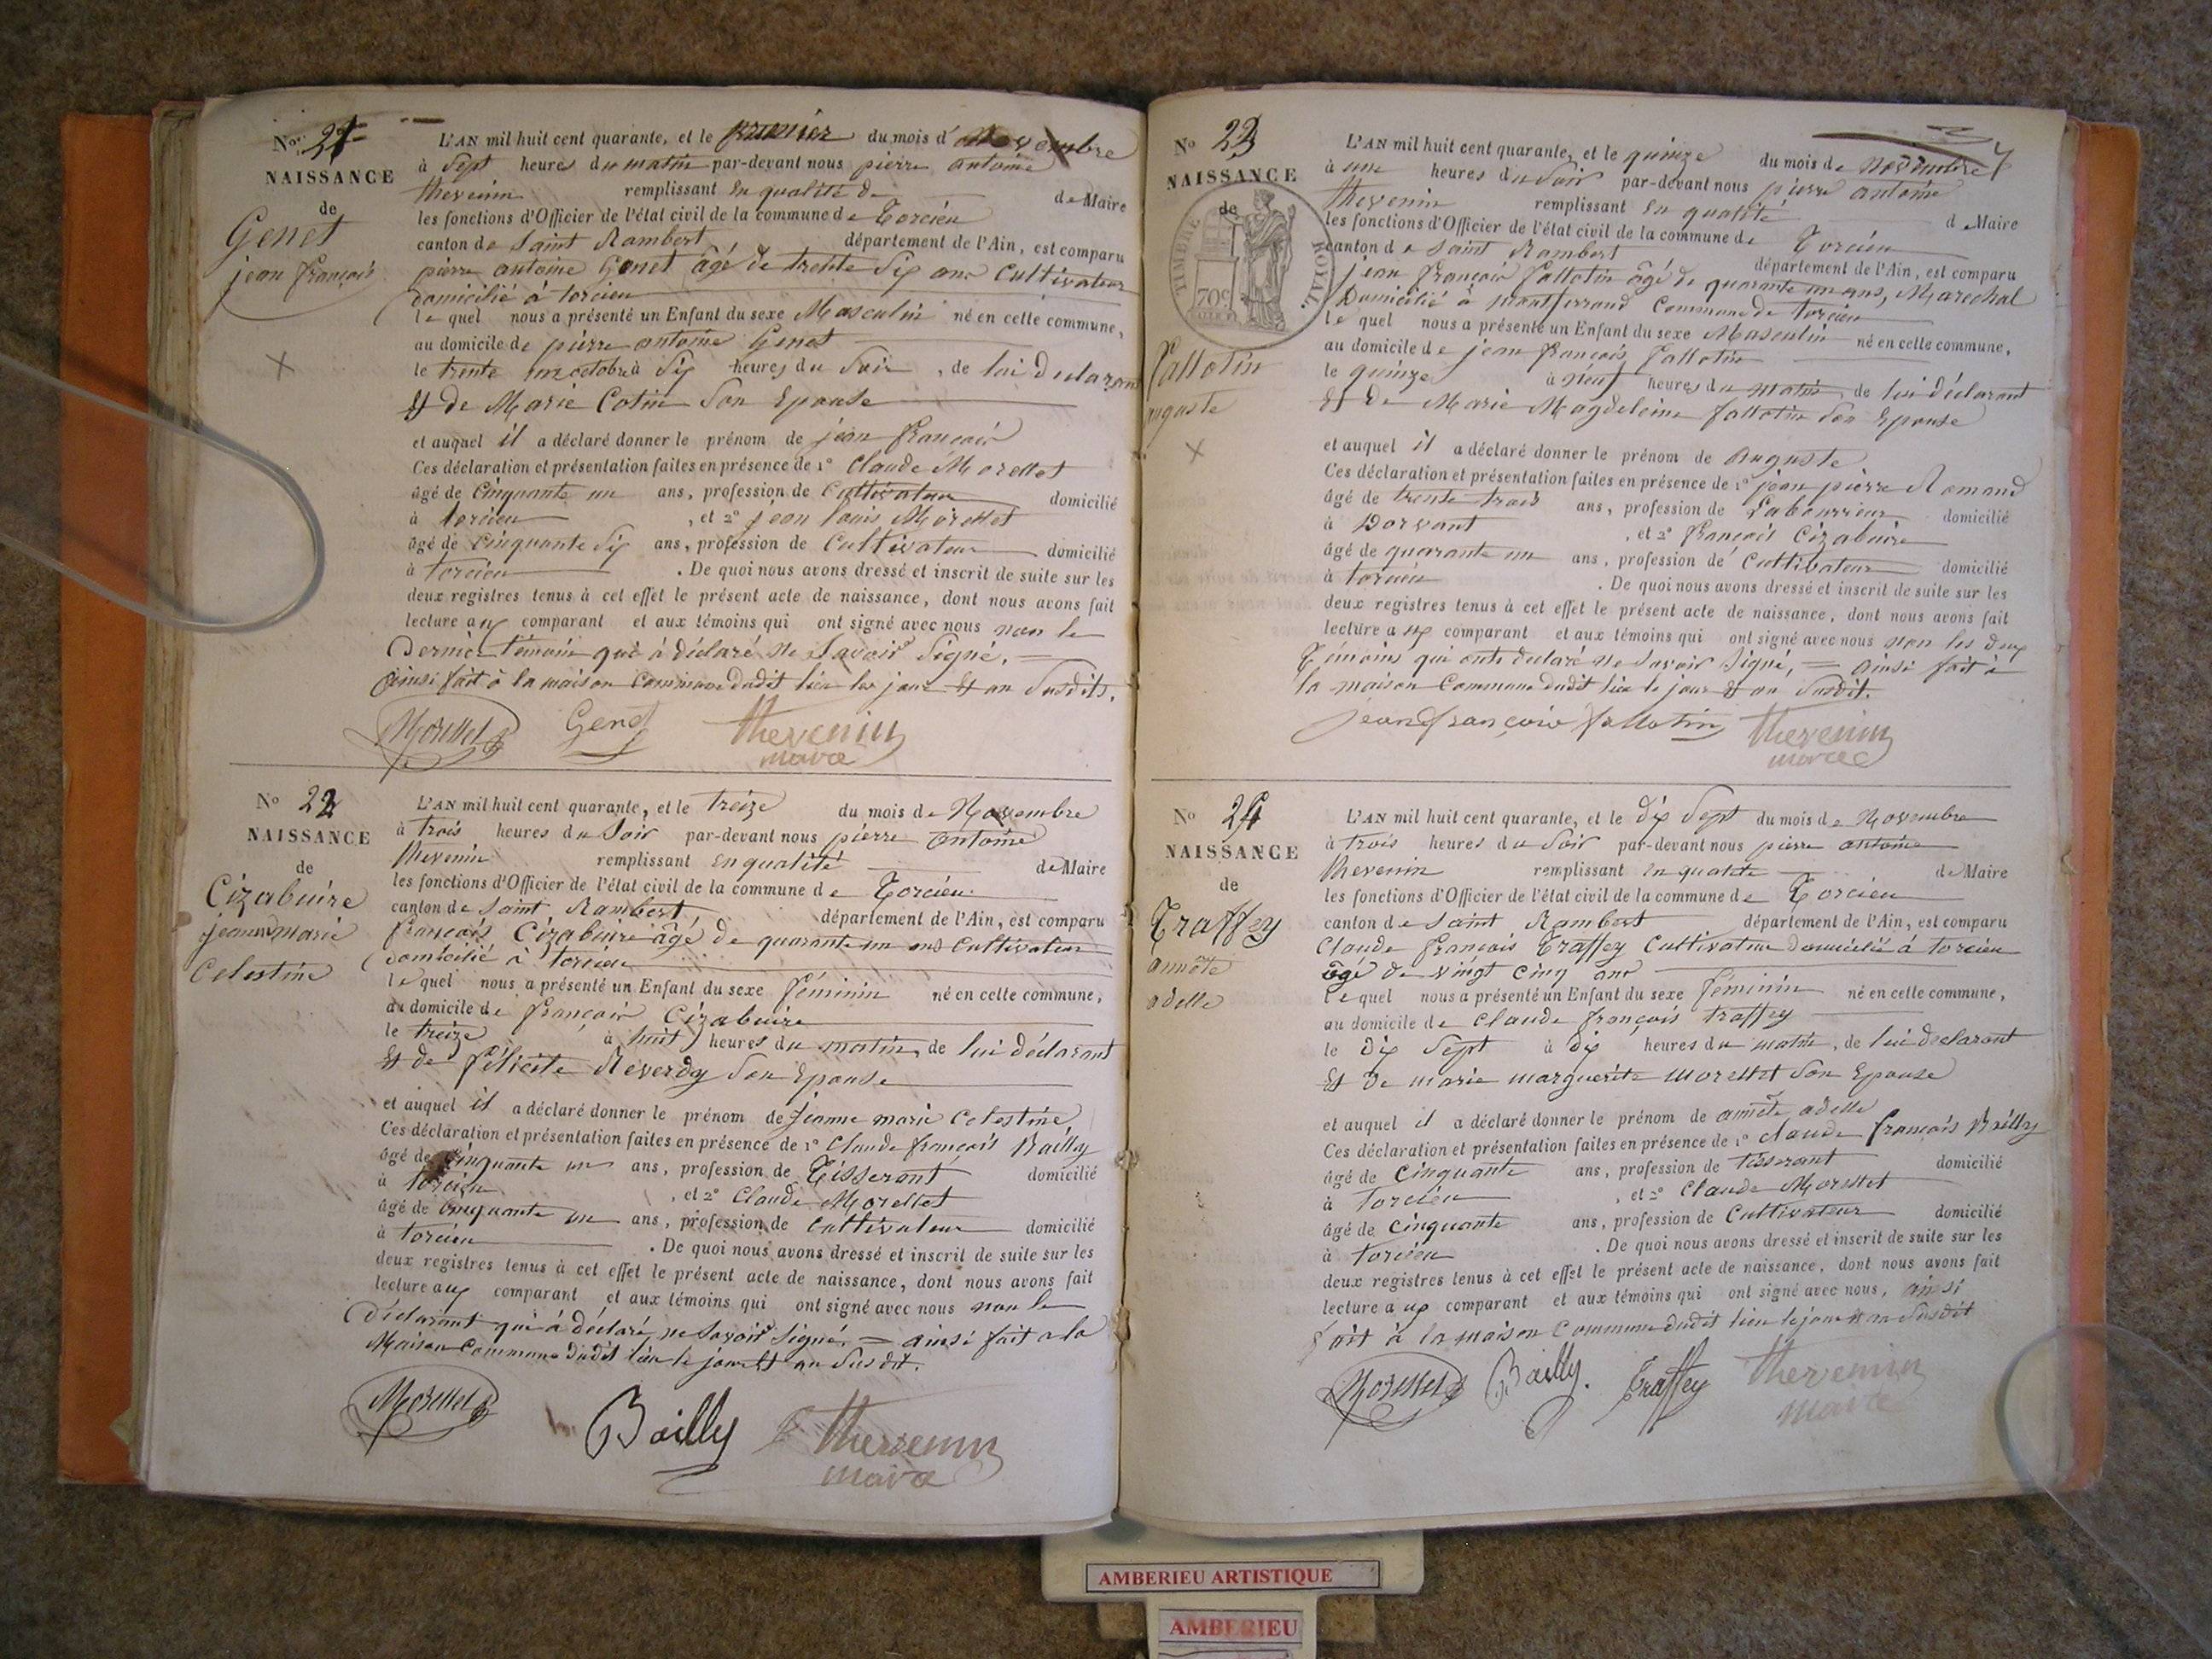 No. 21
NAISSANCE
de
Genet
jean françois
L'AN mil huit cent quarante, et le premier du mois d novembre
à Sept heures du matin par-devant nous pierre antoine
thevenin remplissant en qualité de de Maire
les fonctions d'Officier de l'état civil de la commune de Torcieu
canton de Saint Rambert département de l'Ain, est comparu
pierre antoine Genet âgé de trente Six ans Cultivateur
domicilié à torcieu
lequel nous a présenté un Enfant du sexe Masculin né en cette commune,
au domicile de pierre antoine Genet
le trente un octobre à Six heures du Soir, de lui declarant
Et de Marie Cotin Son Epouse
et auquel il a déclaré donner le prénom de jean françois
Ces déclaration et présentation faites en présence de 1° Claude Morettet
âgé de Cinquante un ans, profession de Cultivateur domicilié
à torcieu, et 2° jean louis Morettet
âgé de Cinquante Six ans, profession de Cultivateur domicilié
à torcieu. De quoi nous avons dressé et inscrit de suite sur les
deux registres tenus à cet effet le présent acte de naissance, dont nous avons fait
lecture aux comparant et aux témoins qui ont signé avec nous non le
Dernier témoin qui à déclaré ne Savoir Signé.
ainsi fait à la maison Commune dudit lieu les jour Et an Susdits.
Morettet Genet Thevenin
maire
No 22
NAISSANCE
de
Cizabuire
jeanne marie
Celestine
L'AN mil huit cent quarante, et le treize du mois de Novembre
à trois heures du Soir par-devant nous pierre antoine
thevenin remplissant en qualité de Maire
les fonctions d'Officier de l'état civil de la commune de Torcieu
canton de Saint Rambert département de l'Ain, est comparu
françois Cizabuire âgé de quarante un ans Cultivateur
domicilié à torcieu
lequel nous a présenté un Enfant du sexe féminin né en cette commune,
au domicile de françois Cizabuire
le treize à huit heures du matin, de lui déclarant
Et de félicité Reverdy Son Epouse
et auquel il a déclaré donner le prénom de Jeanne marie Celestine
Ces déclaration et présentation faites en présence de 1° Claude françois Bailly
âgé de Cinquante un ans, profession de Tisserant domicilié
à torcieu, et 2° Claude Morettet
âgé de Cinquante un ans, profession de Cultivateur domicilié
à torcieu. De quoi nous avons dressé et inscrit de suite sur les
deux registres tenus à cet effet le présent acte de naissance, dont nous avons fait
lecture aux comparant et aux témoins qui ont signé avec nous non le
Déclarant qui à déclaré ne Savoir Signé, = ainsi fait a la
Maison Commune dudit lieu le jour Et an Susdit.
Morettet Bailly Thevenin
maire
No 23
NAISSANCE
de
TIMBRE ROYAL.
70c
fallotin
auguste
L'AN mil huit cent quarante, et le quinze du mois de novembre
à une heures du Soir par-devant nous pierre antoine
thevenin remplissant en qualité de Maire
les fonctions d'Officier de l'état civil de la commune de Torcieu
canton de Saint Rambert département de l'Ain, est comparu
jean françois fallotin âgé de quarante un ans, Marechal
Domicilié à montferrand Commune de torcieu
lequel nous a présenté un Enfant du sexe Masculin né en cette commune,
au domicile de jean françois fallotin
le quinze à neuf heures du matin, de lui déclarant
Et De Marie Magdeleine fallotin Son Epouse
et auquel il a déclaré donner le prénom de auguste
Ces déclaration et présentation faites en présence de 1° jean pierre Romand
âgé de trente trois ans, profession de Labourreur domicilié
à Dorvant, et 2° françois Cizabuire
âgé de quarante un ans, profession de Cultivateur domicilié
à torcieu. De quoi nous avons dressé et inscrit de suite sur les
deux registres tenus à cet effet le présent acte de naissance, dont nous avons fait
lecture aux comparant et aux témoins qui ont signé avec nous non les deux
Témoins qui ont déclaré ne Savoir Signé, = ainsi fait à
la maison Commune dudit lieu le jour Et an Susdit.
jean françois fallotin Thevenin
maire
No 24
NAISSANCE
de
Traffey
annete
adelle
L'AN mil huit cent quarante, et le dix Sept du mois de Novembre
à trois heures du Soir par-devant nous pierre antoine
thevenin remplissant en qualité de Maire
les fonctions d'Officier de l'état civil de la commune de Torcieu
canton de Saint Rambert département de l'Ain, est comparu
Claude françois Traffey Cultivateur domicilié à torcieu
âgé de vingt cinq ans
lequel nous a présenté un Enfant du sexe féminin né en cette commune,
au domicile de Claude françois traffey
le dix Sept à dix heures du matin, de lui declarant
Et De marie marguerite Morettet Son Epouse
et auquel il a déclaré donner le prénom de annete adelle
Ces déclaration et présentation faites en présence de 1° Claude françois Bailly
âgé de Cinquante ans, profession de tisserant domicilié
à torcieu, et 2° Claude Morettet
âgé de Cinquante ans, profession de Cultivateur domicilié
à torcieu. De quoi nous avons dressé et inscrit de suite sur les
deux registres tenus à cet effet le présent acte de naissance, dont nous avons fait
lecture aux comparant et aux témoins qui ont signé avec nous, ainsi
fait à la maison Commune dudit lieu le jour Et an Susdit
Morettet Bailly. Traffey Thevenin
maire
AMBERIEU ARTISTIQUE
AMBERIEU